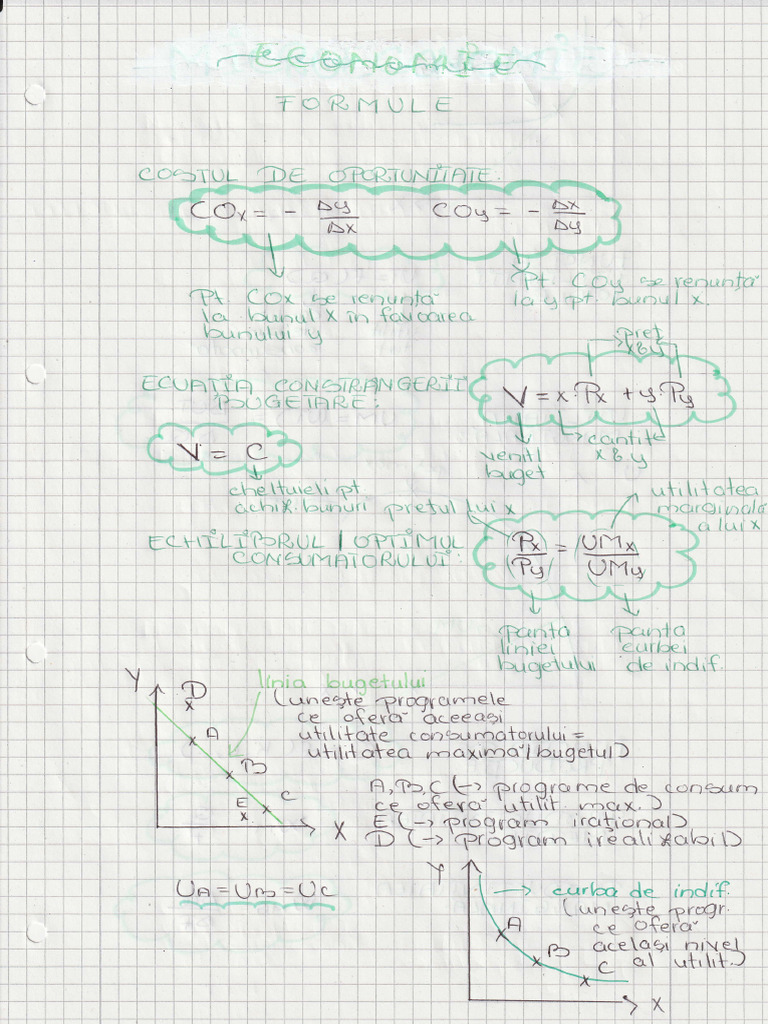 ECONOMIE
FORMULE
COSTUL DE OPORTUNITATE.
COx = - Δy/Δx COy = - Δx/Δy
Pt. COx se renunță
la bunul x în favoarea
bunului y
Pt. COy se renunță
la y pt. bunul x.
preț
x & y
ECUAȚIA CONSTRANGERII
BUGETARE:
V = x·Px + y·Py
V = C
cantit.
x & y
venit/
buget
cheltuieli pt
achiz. bunuri
prețul lui x
utilitatea
marginală
a lui x
ECHILIBRUL / OPTIMUL
CONSUMATORULUI:
Px/Py = UMx/UMy
panta
liniei
bugetului
panta
curbei
de indif.
linia bugetului
(unește programele
ce oferă aceeași
utilitate consumatorului =
utilitatea maximă/bugetul)
Y
D
A
B
E
C
X
A, B, C (→ programe de consum
ce oferă utilit. max.)
E (→ program irațional)
D (→ program irealizabil)
UA = UB = UC
Y
→ curba de indif.
(unește progr.
ce oferă
același nivel
al utilit.)
A
B
C
X